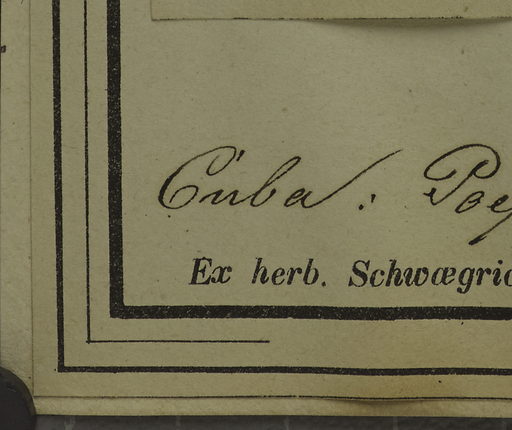 Cuba. Poep
Ex herb. Schwægric